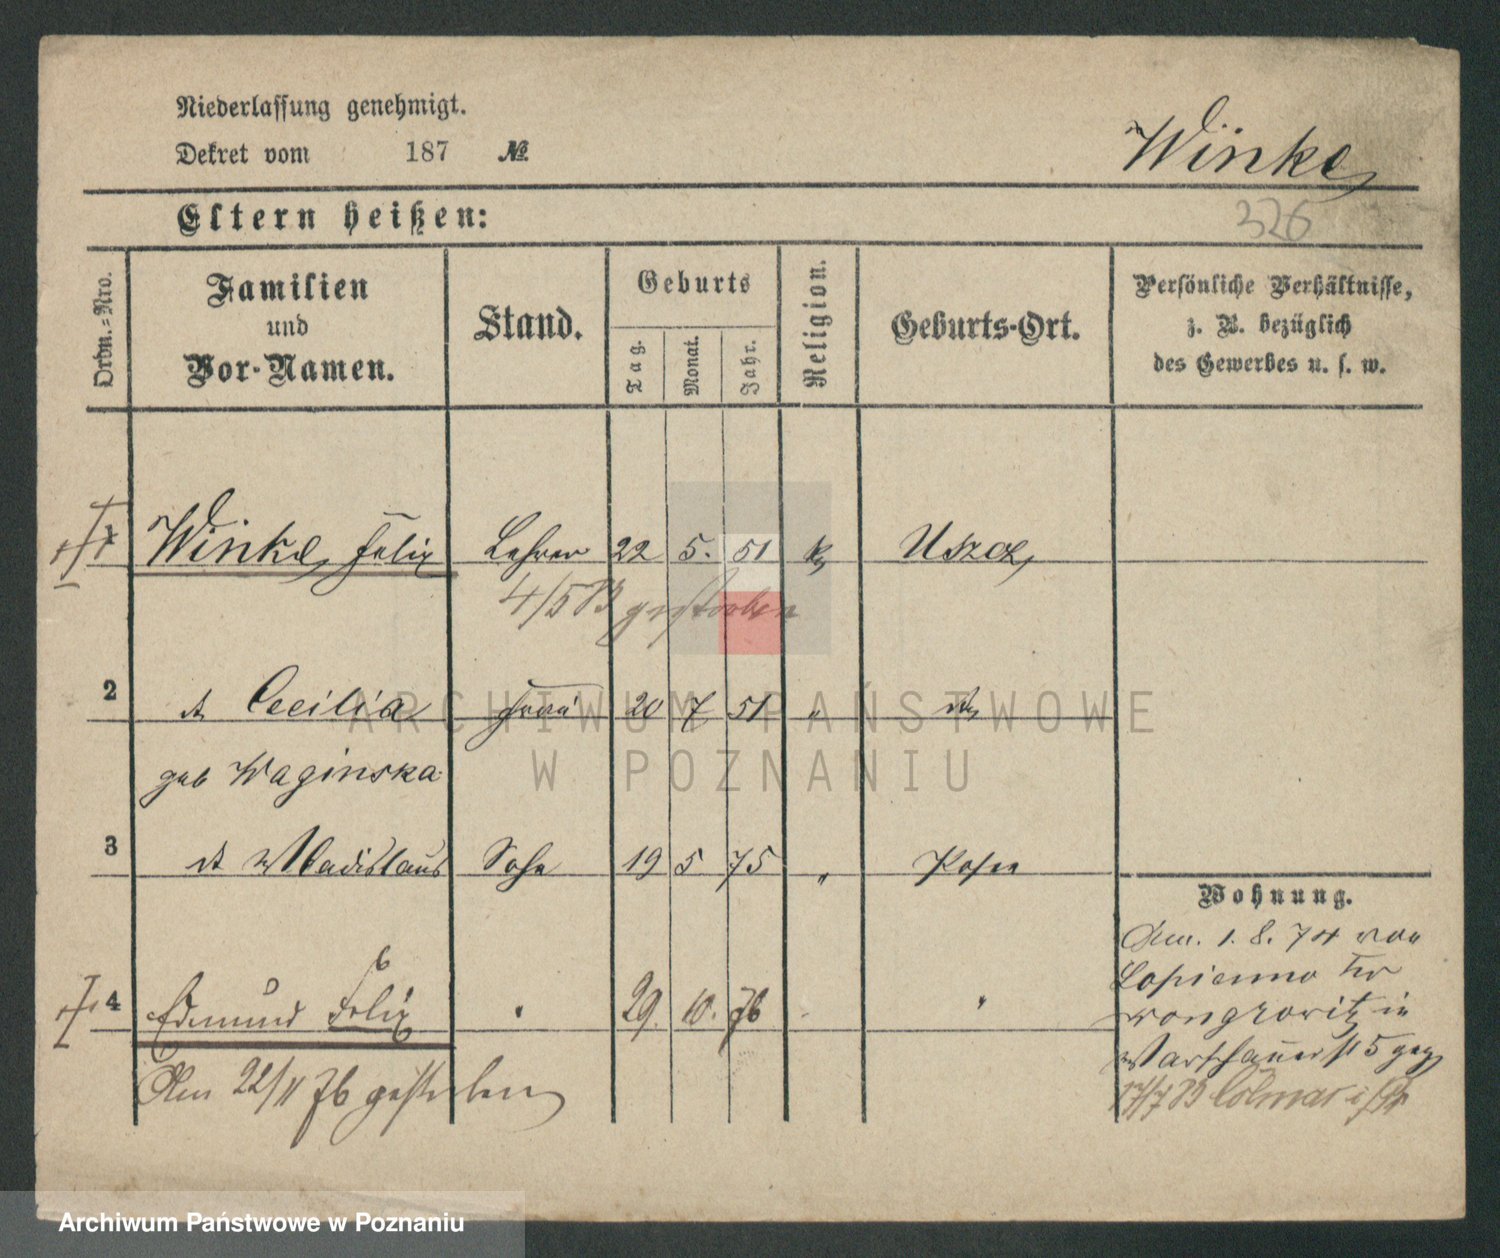 Niederlassung genehmigt.
Dekret vom 187 №
Winke
326
Eltern heißen:
Ordn.-Nro.
Familien
und
Vor-Namen.
Stand.
Geburts
Tag.
Monat.
Jahr.
Religion.
Geburts-Ort.
Persönliche Verhältnisse,
z. B. bezüglich
des Gewerbes u. s. w.
Winke, Felix Lehrer 22 5. 51 k
gestorben
2 Cecilia Frau 20 7 51 "
geb Waginska
3 Wladislaus Sohn 19 5 75 " Posen
4 Edmund Felix " 29. 10. 76 "
Am 22/11 76 gestorben
Wohnung.
1. 8. 74 von
Lopienno Kr
Wongrowitz in
Warschauerst 5
Colmar i/P
ARCHIWUM PAŃSTWOWE
W POZNANIU
Archiwum Państwowe w Poznaniu